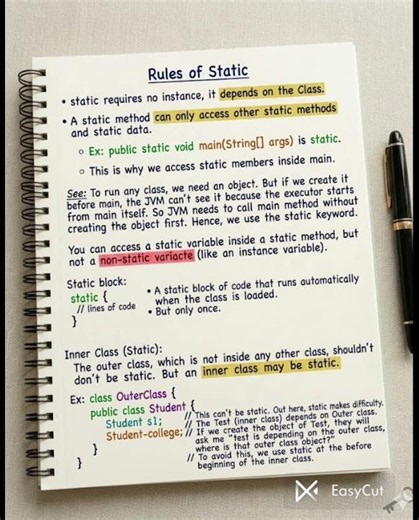 Rules of Static
• static requires no instance, it depends on the Class.
• A static method can only access other static methods
and static data.
○ Ex: public static void main(String[] args) is static.
○ This is why we access static members inside main.
See: To run any class, we need an object. But if we create it
before main, the JVM can't see it because the executor starts
from main itself. So JVM needs to call main method without
creating the object first. Hence, we use the static keyword.
You can access a static variable inside a static method, but
not a non-static variacte (like an instance variable).
Static block:
static {
// lines of code
}
• A static block of code that runs automatically
when the class is loaded.
• But only once.
Inner Class (Static):
The outer class, which is not inside any other class, shouldn't
don't be static. But an inner class may be static.
Ex: class OuterClass {
public class Student {
Student s1;
Student-college;
}
}
// This can't be static. Out here, static makes difficulty.
// The Test (inner class) depends on Outer class.
// If we create the object of Test, they will
ask me "test is depending on the outer class,
where is that outer class object?"
// To avoid this, we use static at the before
beginning of the inner class.
EasyCut